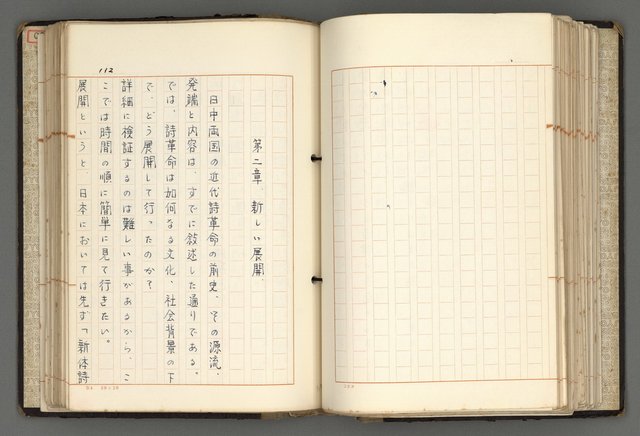 112
第二章、新しい展開、
日中両国の近代詩革命の前史、その源流、
発端と内容は、すでに叙述した通りである。
では、詩革命は如何なる文化、社会背景の下
で、どう展開して行ったのか?
詳細に検証するのは難しい事があるから、こ
こでは時間の順に簡単に見て行きたい。
展開というと、日本においては先ず「新体詩